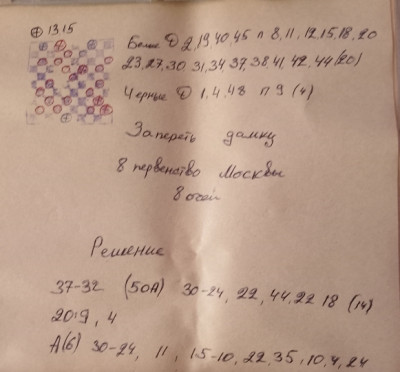 ⊕ 1315
Белые Д 2,19,40,45 п 8,11,12,15,18,20
23,27,30,31,34,37,38,41,42,44 (20)
Черные Д 1,4,48 п 9 (4)
Запереть дамку
8 первенство Москвы
8 очей
Решение
37-32 (50А) 30-24, 22, 44, 22 18 (14)
20:9, 4
А(6) 30-24, 11, 15-10, 22, 35, 10, 4, 24